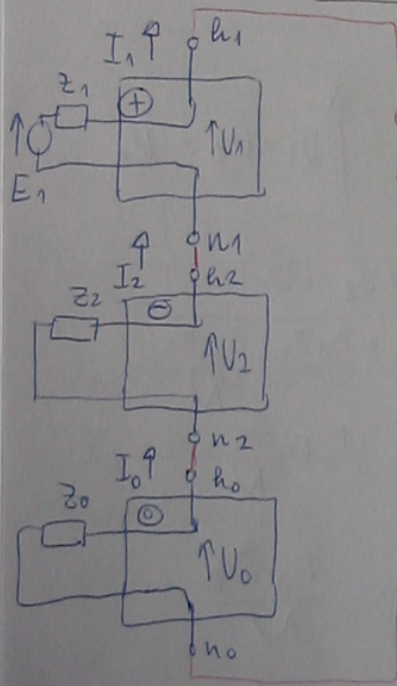 I1 h1
Z1
+
U1
E1
n1
I2 h2
Z2
-
U2
n2
I0 h0
Z0
0
U0
n0